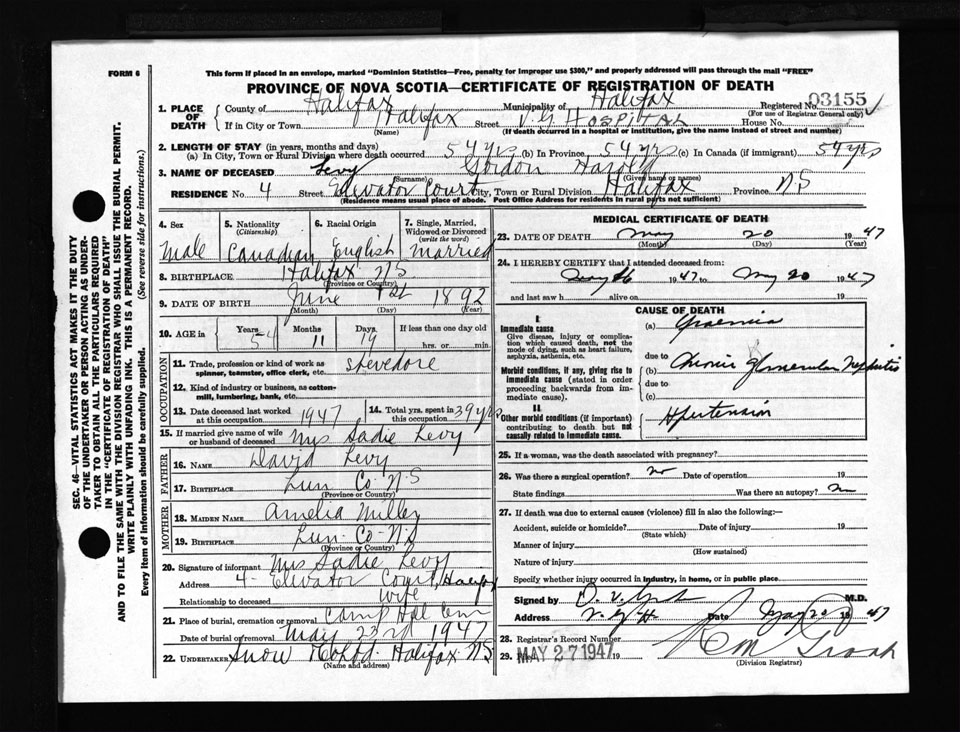 FORM 6
This form if placed in an envelope, marked "Dominion Statistics—Free, penalty for improper use $300," and properly addressed will pass through the mail "FREE"
PROVINCE OF NOVA SCOTIA—CERTIFICATE OF REGISTRATION OF DEATH
1. PLACE OF DEATH
County of Halifax Municipality of Halifax Registered No. 03155
(For use of Registrar General only)
If in City or Town Halifax Street V.G HOSPITAL House No.
(Name) (If death occurred in a hospital or institution, give the name instead of street and number)
2. LENGTH OF STAY (in years, months and days)
(a) In City, Town or Rural Division where death occurred 54 yrs (b) In Province 54 yrs (c) In Canada (if immigrant) 54 yrs
3. NAME OF DECEASED Levy Gordon Harold
(Surname) (Given name or names)
RESIDENCE No. 4 Street Elevator Court City, Town or Rural Division Halifax Province N S
(Residence means usual place of abode. Post Office Address for residents in rural parts not sufficient)
4. Sex Male
5. Nationality (Citizenship) Canadian
6. Racial Origin English
7. Single, Married, Widowed or Divorced (write the word) Married
8. BIRTHPLACE Halifax N S
(Province or Country)
9. DATE OF BIRTH June 1st 1892
(Month) (Day) (Year)
10. AGE in Years 54 Months 11 Days 19 If less than one day old
hrs. or min.
OCCUPATION
11. Trade, profession or kind of work as spinner, teamster, office clerk, etc. Stevedore
12. Kind of industry or business, as cotton-mill, lumbering, bank, etc.
13. Date deceased last worked at this occupation 1947
14. Total yrs. spent in this occupation 39 yrs
15. If married give name of wife or husband of deceased Mrs Sadie Levy
FATHER
16. NAME David Levy
17. BIRTHPLACE Lun Co N.S
(Province or Country)
MOTHER
18. MAIDEN NAME Amelia Miller
19. BIRTHPLACE Lun Co N.S
(Province or Country)
20. Signature of informant Mrs Sadie Levy
Address 4 Elevator Court, Halifax
Relationship to deceased Wife
21. Place of burial, cremation or removal Camp Hill Cem
Date of burial or removal May 23rd 1947
22. UNDERTAKER Snow & Co Ltd. Halifax N S
(Name and address)
MEDICAL CERTIFICATE OF DEATH
23. DATE OF DEATH May 20 1947
(Month) (Day) (Year)
24. I HEREBY CERTIFY that I attended deceased from:
May 16 1947 to May 20 1947
and last saw h alive on 19
CAUSE OF DEATH
I.
Immediate cause
Give disease, injury or complication which caused death, not the mode of dying, such as heart failure, asphyxia, asthenia, etc.
(a) Uraemia
due to
Morbid conditions, if any, giving rise to immediate cause (stated in order proceeding backwards from immediate cause).
(b) Chronic glomerular Nephritis
due to
(c)
II.
Other morbid conditions (if important) contributing to death but not causally related to immediate cause.
Hypertension
25. If a woman, was the death associated with pregnancy?
26. Was there a surgical operation? no Date of operation 19
State findings Was there an autopsy? no
27. If death was due to external causes (violence) fill in also the following:—
Accident, suicide or homicide? Date of injury 19
(State which)
Manner of injury
(How sustained)
Nature of injury
Specify whether injury occurred in industry, in home, or in public place.
Signed by M.D.
Address V. G. H. Date May 20 1947
28. Registrar's Record Number
29. MAY 27 1947 19
(Division Registrar)
SEC. 46—VITAL STATISTICS ACT MAKES IT THE DUTY
OF THE UNDERTAKER OR PERSON ACTING AS UNDER-
TAKER TO OBTAIN ALL THE PARTICULARS REQUIRED
IN THE "CERTIFICATE OF REGISTRATION OF DEATH"
AND TO FILE THE SAME WITH THE DIVISION REGISTRAR WHO SHALL ISSUE THE BURIAL PERMIT.
WRITE PLAINLY WITH UNFADING INK. THIS IS A PERMANENT RECORD.
Every item of information should be carefully supplied. (See reverse side for instructions.)